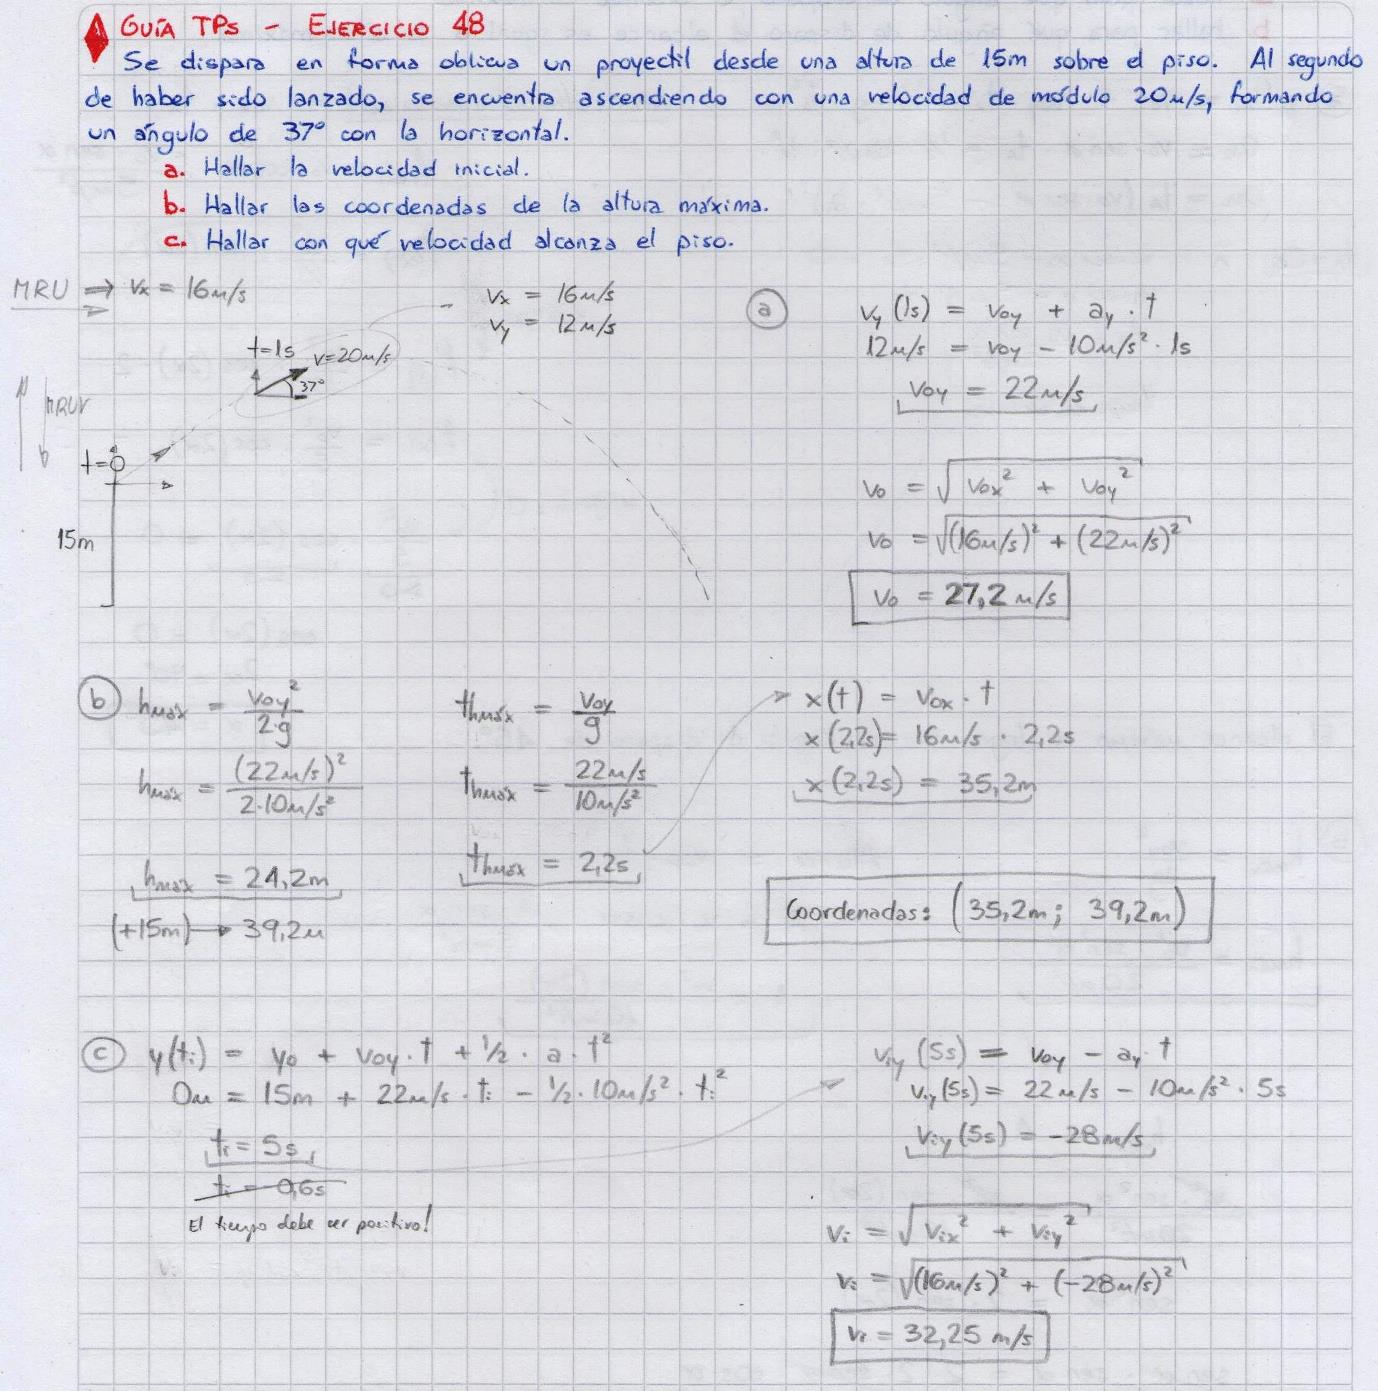 GUÍA TPs - EJERCICIO 48
Se dispara en forma oblicua un proyectil desde una altura de 15m sobre el piso. Al segundo
de haber sido lanzado, se encuentra ascendiendo con una velocidad de módulo 20m/s, formando
un ángulo de 37° con la horizontal.
a. Hallar la velocidad inicial.
b. Hallar las coordenadas de la altura máxima.
c. Hallar con qué velocidad alcanza el piso.
MRU ⇒ Vx = 16m/s
Vx = 16m/s
Vy = 12m/s
t=1s
V=20m/s
37°
MRUV
t=0
15m
a
Vy (1s) = Voy + ay . t
12m/s = Voy - 10m/s² . 1s
Voy = 22m/s
Vo = √(Vox² + Voy²)
Vo = √((16m/s)² + (22m/s)²)
Vo = 27,2 m/s
b
hmáx = Voy² / 2.g
hmáx = (22m/s)² / 2.10m/s²
hmáx = 24,2m
(+15m) → 39,2m
thmáx = Voy / g
thmáx = 22m/s / 10m/s²
thmáx = 2,2s
x(t) = Vox . t
x(2,2s) = 16m/s . 2,2s
x(2,2s) = 35,2m
Coordenadas: (35,2m; 39,2m)
c
y(ti) = yo + Voy . t + 1/2 . a . t²
0m = 15m + 22m/s . ti - 1/2 . 10m/s² . ti²
ti = 5s
ti = -0,6s
El tiempo debe ser positivo!
Viy (5s) = Voy - ay . t
Viy (5s) = 22m/s - 10m/s² . 5s
Viy (5s) = -28m/s
Vi = √(Vix² + Viy²)
Vi = √((16m/s)² + (-28m/s)²)
Vi = 32,25 m/s